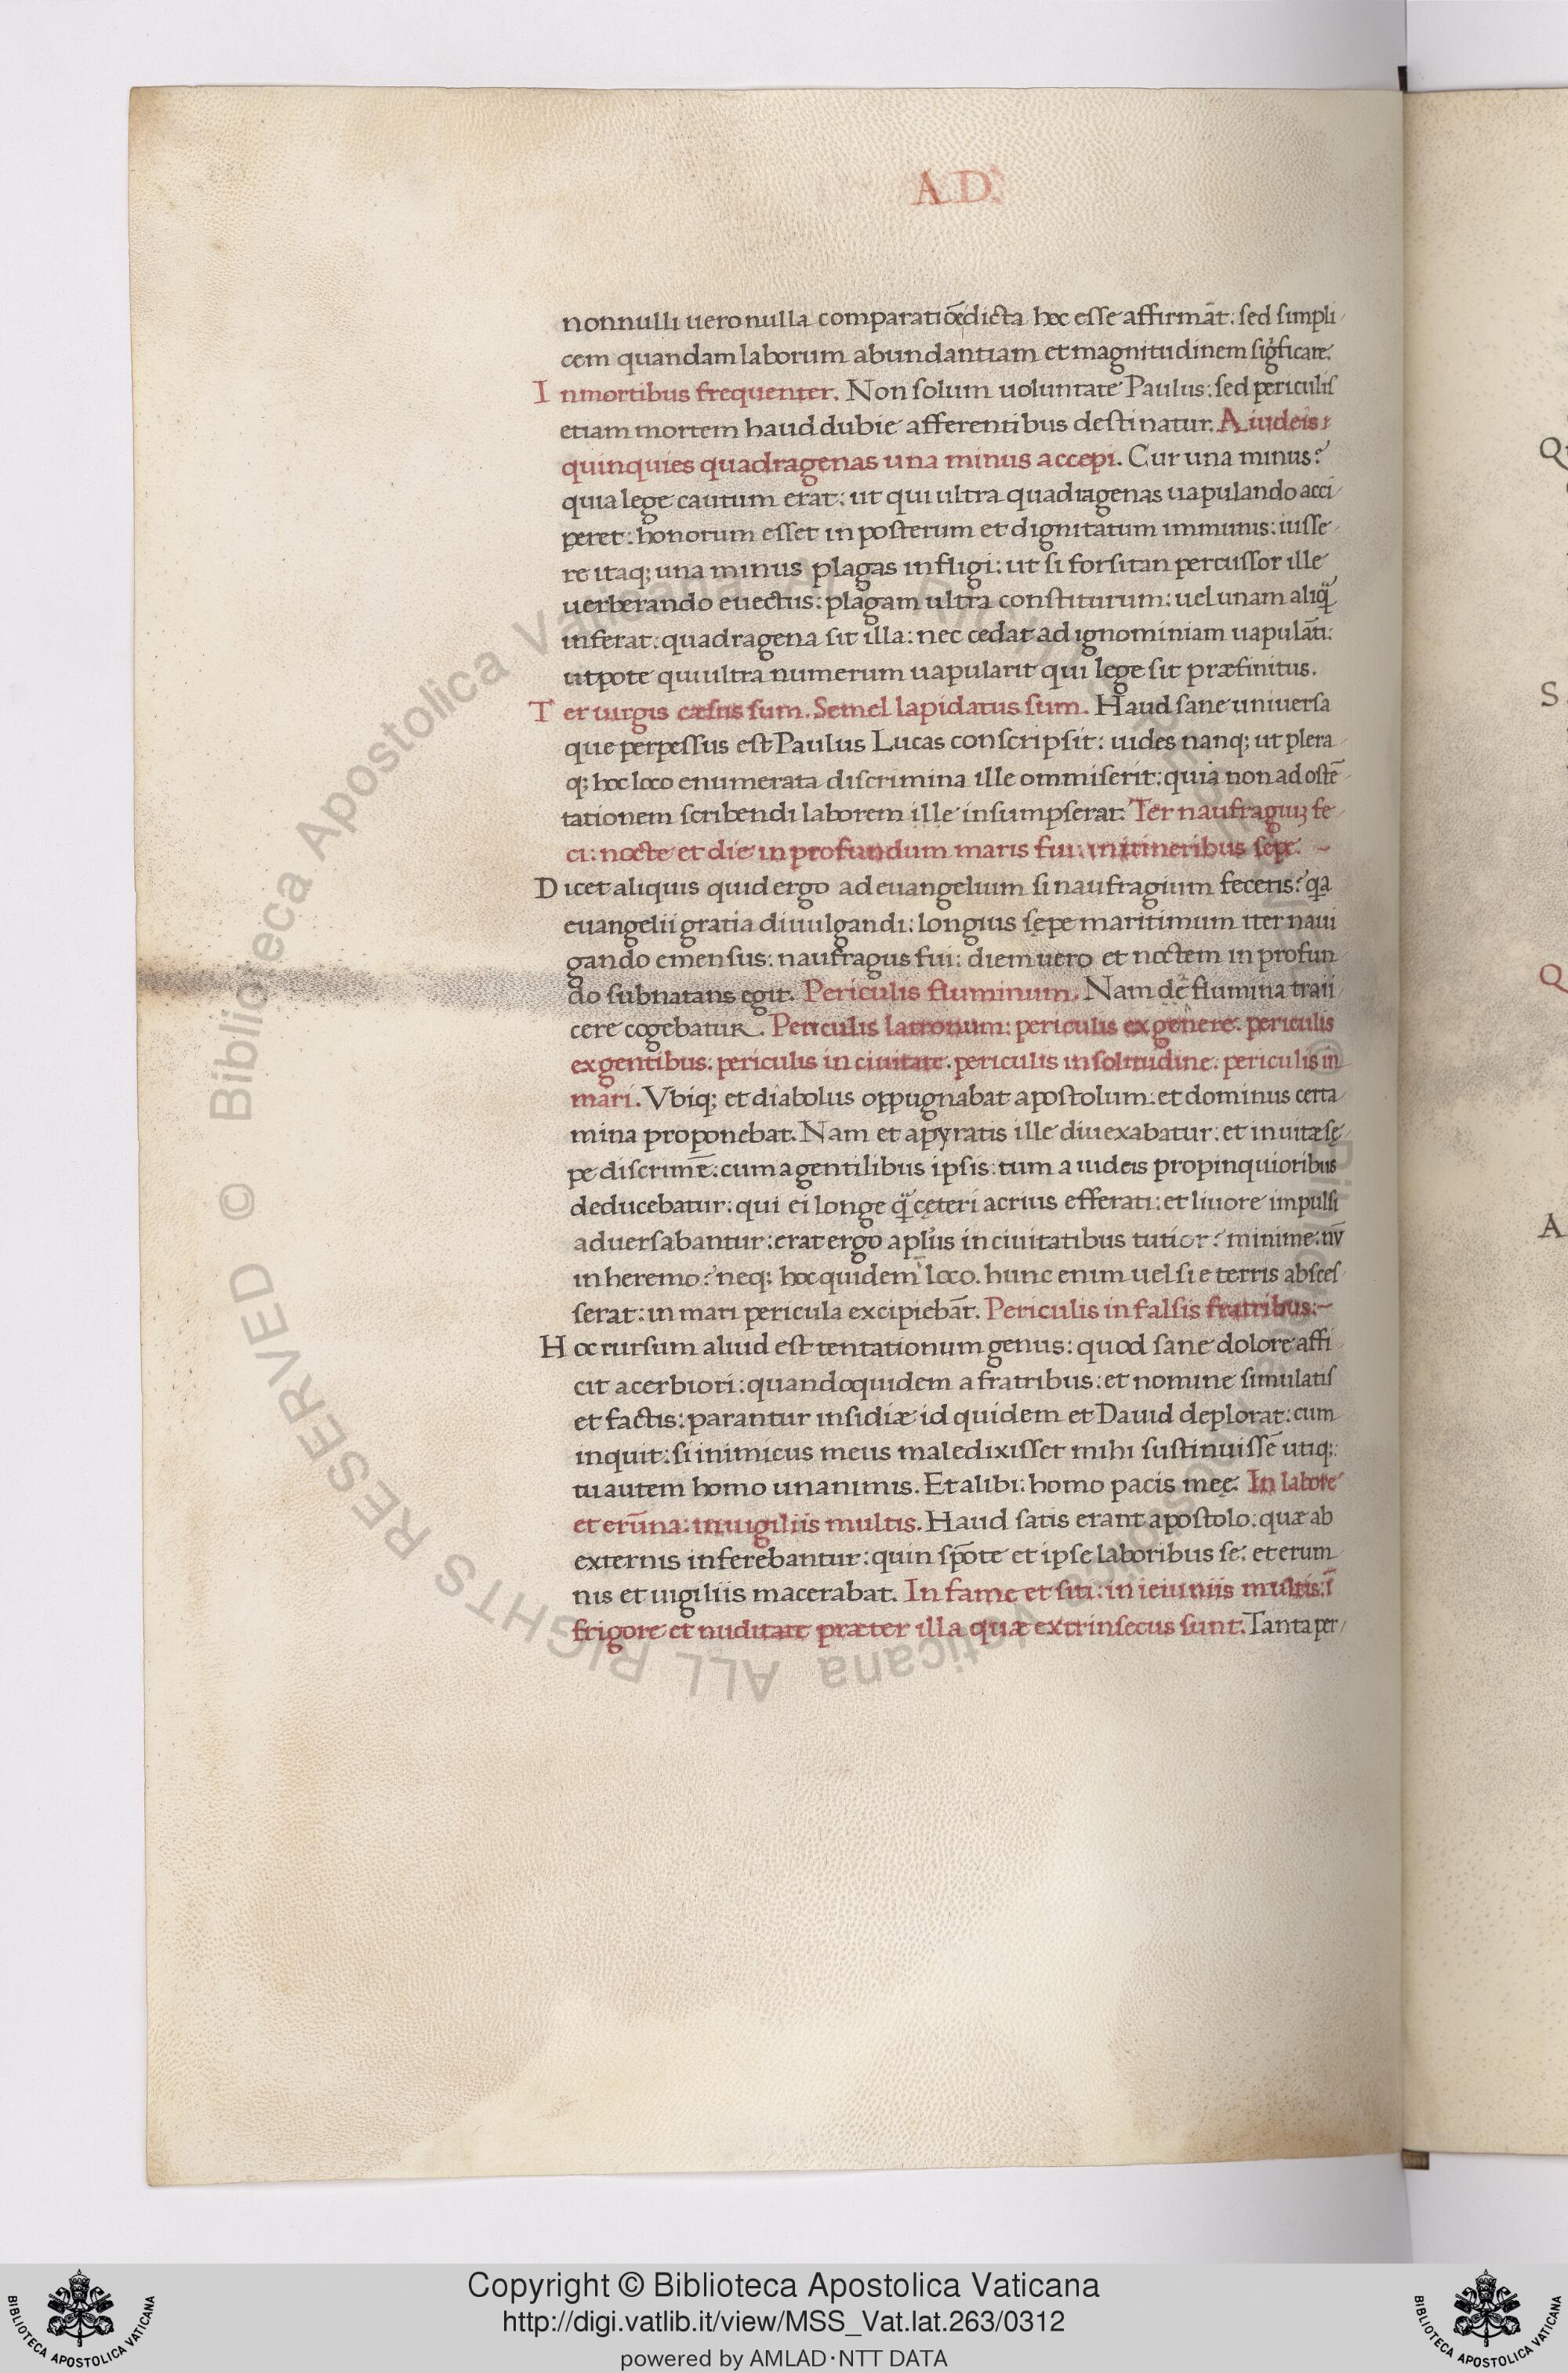 A.D.
nonnulli uero nulla comparatiōe dicta hec esse affirmāt: sed simpli
cem quandam laborum abundantiam et magnitudinem sigficare.
In mortibus frequenter. Non solum uoluntate Paulus: sed periculis
etiam mortem haud dubie afferentibus destinatur. A iudeis
quinquies quadragenas una minus accepi. Cur una minus?
quia lege cautum erat: ut qui ultra quadragenas uapulando acci
peret: honorum esset in posterum et dignitatum immunis: iusse
re itaq; una minus plagas infligi: ut si forsitan percussor ille
uerberando euectus: plagam ultra constituturum: uel unam aliq̃
inferat: quadragena sit illa: nec cedat ad ignominiam uapulāti:
utpote qui ultra numerum uapularit qui lege sit præfinitus.
Ter uirgis cæsus sum. Semel lapidatus sum. Haud sane uniuersa
que perpessus est Paulus Lucas conscripsit: uides nanq; ut plera
q; hoc loco enumerata discrimina ille ommiserit: quia non ad ostē
tationem scribendi laborem ille insumpserat. Ter naufragiuȝ fe
ci: nocte et die in profundum maris fui: in itineribus sepe.
Dicet aliquis quid ergo ad euangelium si naufragium feceris? qa
euangelii gratia diuulgandi: longius sępe maritimum iter naui
gando emensus: naufragus fui: diem uero et noctem in profun
do subnatans egit. Periculis fluminum. Nam et flumina traii
cere cogebatur. Periculis latronum: periculis ex genere. periculis
ex gentibus. periculis in ciuitate. periculis in solitudine. periculis in
mari. Vbiq; et diabolus oppugnabat apostolum. et dominus certa
mina proponebat. Nam et a pyratis ille diuexabatur: et in uitæ sę
pe discrimē: cum a gentilibus ipsis: tum a iudeis propinquioribus
deducebatur: qui ei longe q̃ ceteri acrius efferati: et liuore impulsi
aduersabantur: erat ergo aplus in ciuitatibus tutior? minime: nū
in heremo? neq; hoc quidem loco. hunc enim uel si e terris absces
serat: in mari pericula excipiebāt. Periculis in falsis fratribus:
Hoc rursum aliud est tentationum genus: quod sane dolore affi
cit acerbiori: quandoquidem a fratribus: et nomine simulatis
et factis: parantur insidiæ id quidem et Dauid deplorat: cum
inquit: si inimicus meus maledixisset mihi sustinuissē utiq;
tu autem homo unanimis. Et alibi: homo pacis meę. In labore
et erūna: in uigiliis multis. Haud satis erant apostolo: quæ ab
externis inferebantur: quin spōte et ipse laboribus se: et erum
nis et uigiliis macerabat. In fame et siti: in ieiuniis multis: ī
frigore et nuditate præter illa quæ extrinsecus sunt. Tanta per
Copyright © Biblioteca Apostolica Vaticana
http://digi.vatlib.it/view/MSS_Vat.lat.263/0312
powered by AMLAD·NTT DATA
BIBLIOTECA APOSTOLICA VATICANA
BIBLIOTECA APOSTOLICA VATICANA